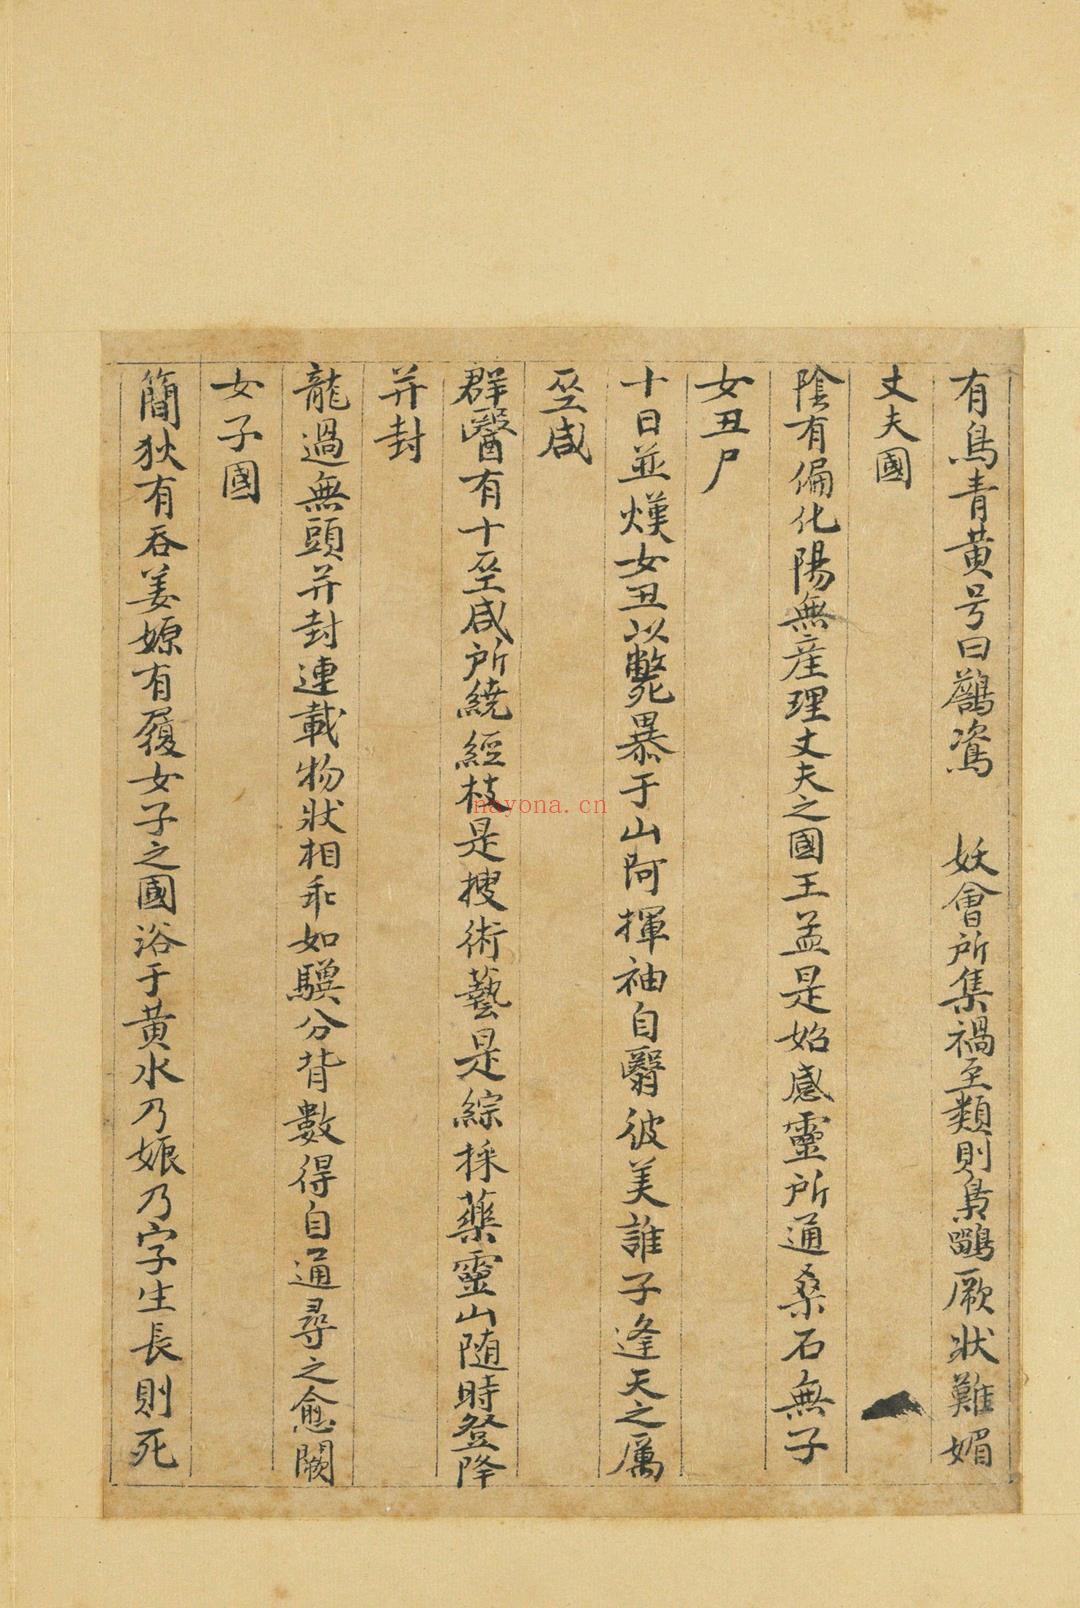 有鳥青黃号曰鷛鴜　妖會所集禍至類則梟鶹厥狀難媚
丈夫國
陰有偏化陽無産理丈夫之國王孟是始感靈所通桑石無子
女丑尸
十日並熯女丑以斃暴于山阿揮袖自翳彼美誰子逢天之厲
巫咸
群毉有十巫咸所統經枝是搜術藝是綜採藥靈山随時登降
并封
龍過無頭并封連載物狀相乖如驥分背數得自通尋之愈闕
女子國
簡狄有吞姜嫄有履女子之國浴于黃水乃娠乃字生長則死
nayona.cn